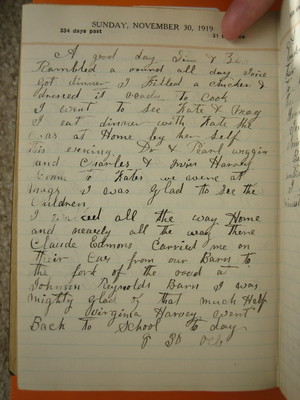 SUNDAY, NOVEMBER 30, 1919
334 days past
31
A good day Jim &
Rambled a round all day
got dinner I Killed a chicken &
dressed it ready to Cook
I went to See Kate &
I eat dinner with Kate She
was at Home by her Self
this evening Dr & Pearl
and Charles & Harvey
Come to Kates we were at
I was Glad to see the
Children
I all the way Home
and nearly all the way there
Claude Edmons Carried me on
their Car from our Barn to
the fork of the road a
Johnson Reynolds Barn I was
mighty glad of that much Help
Virginia Harvey went
Back to School to day
30